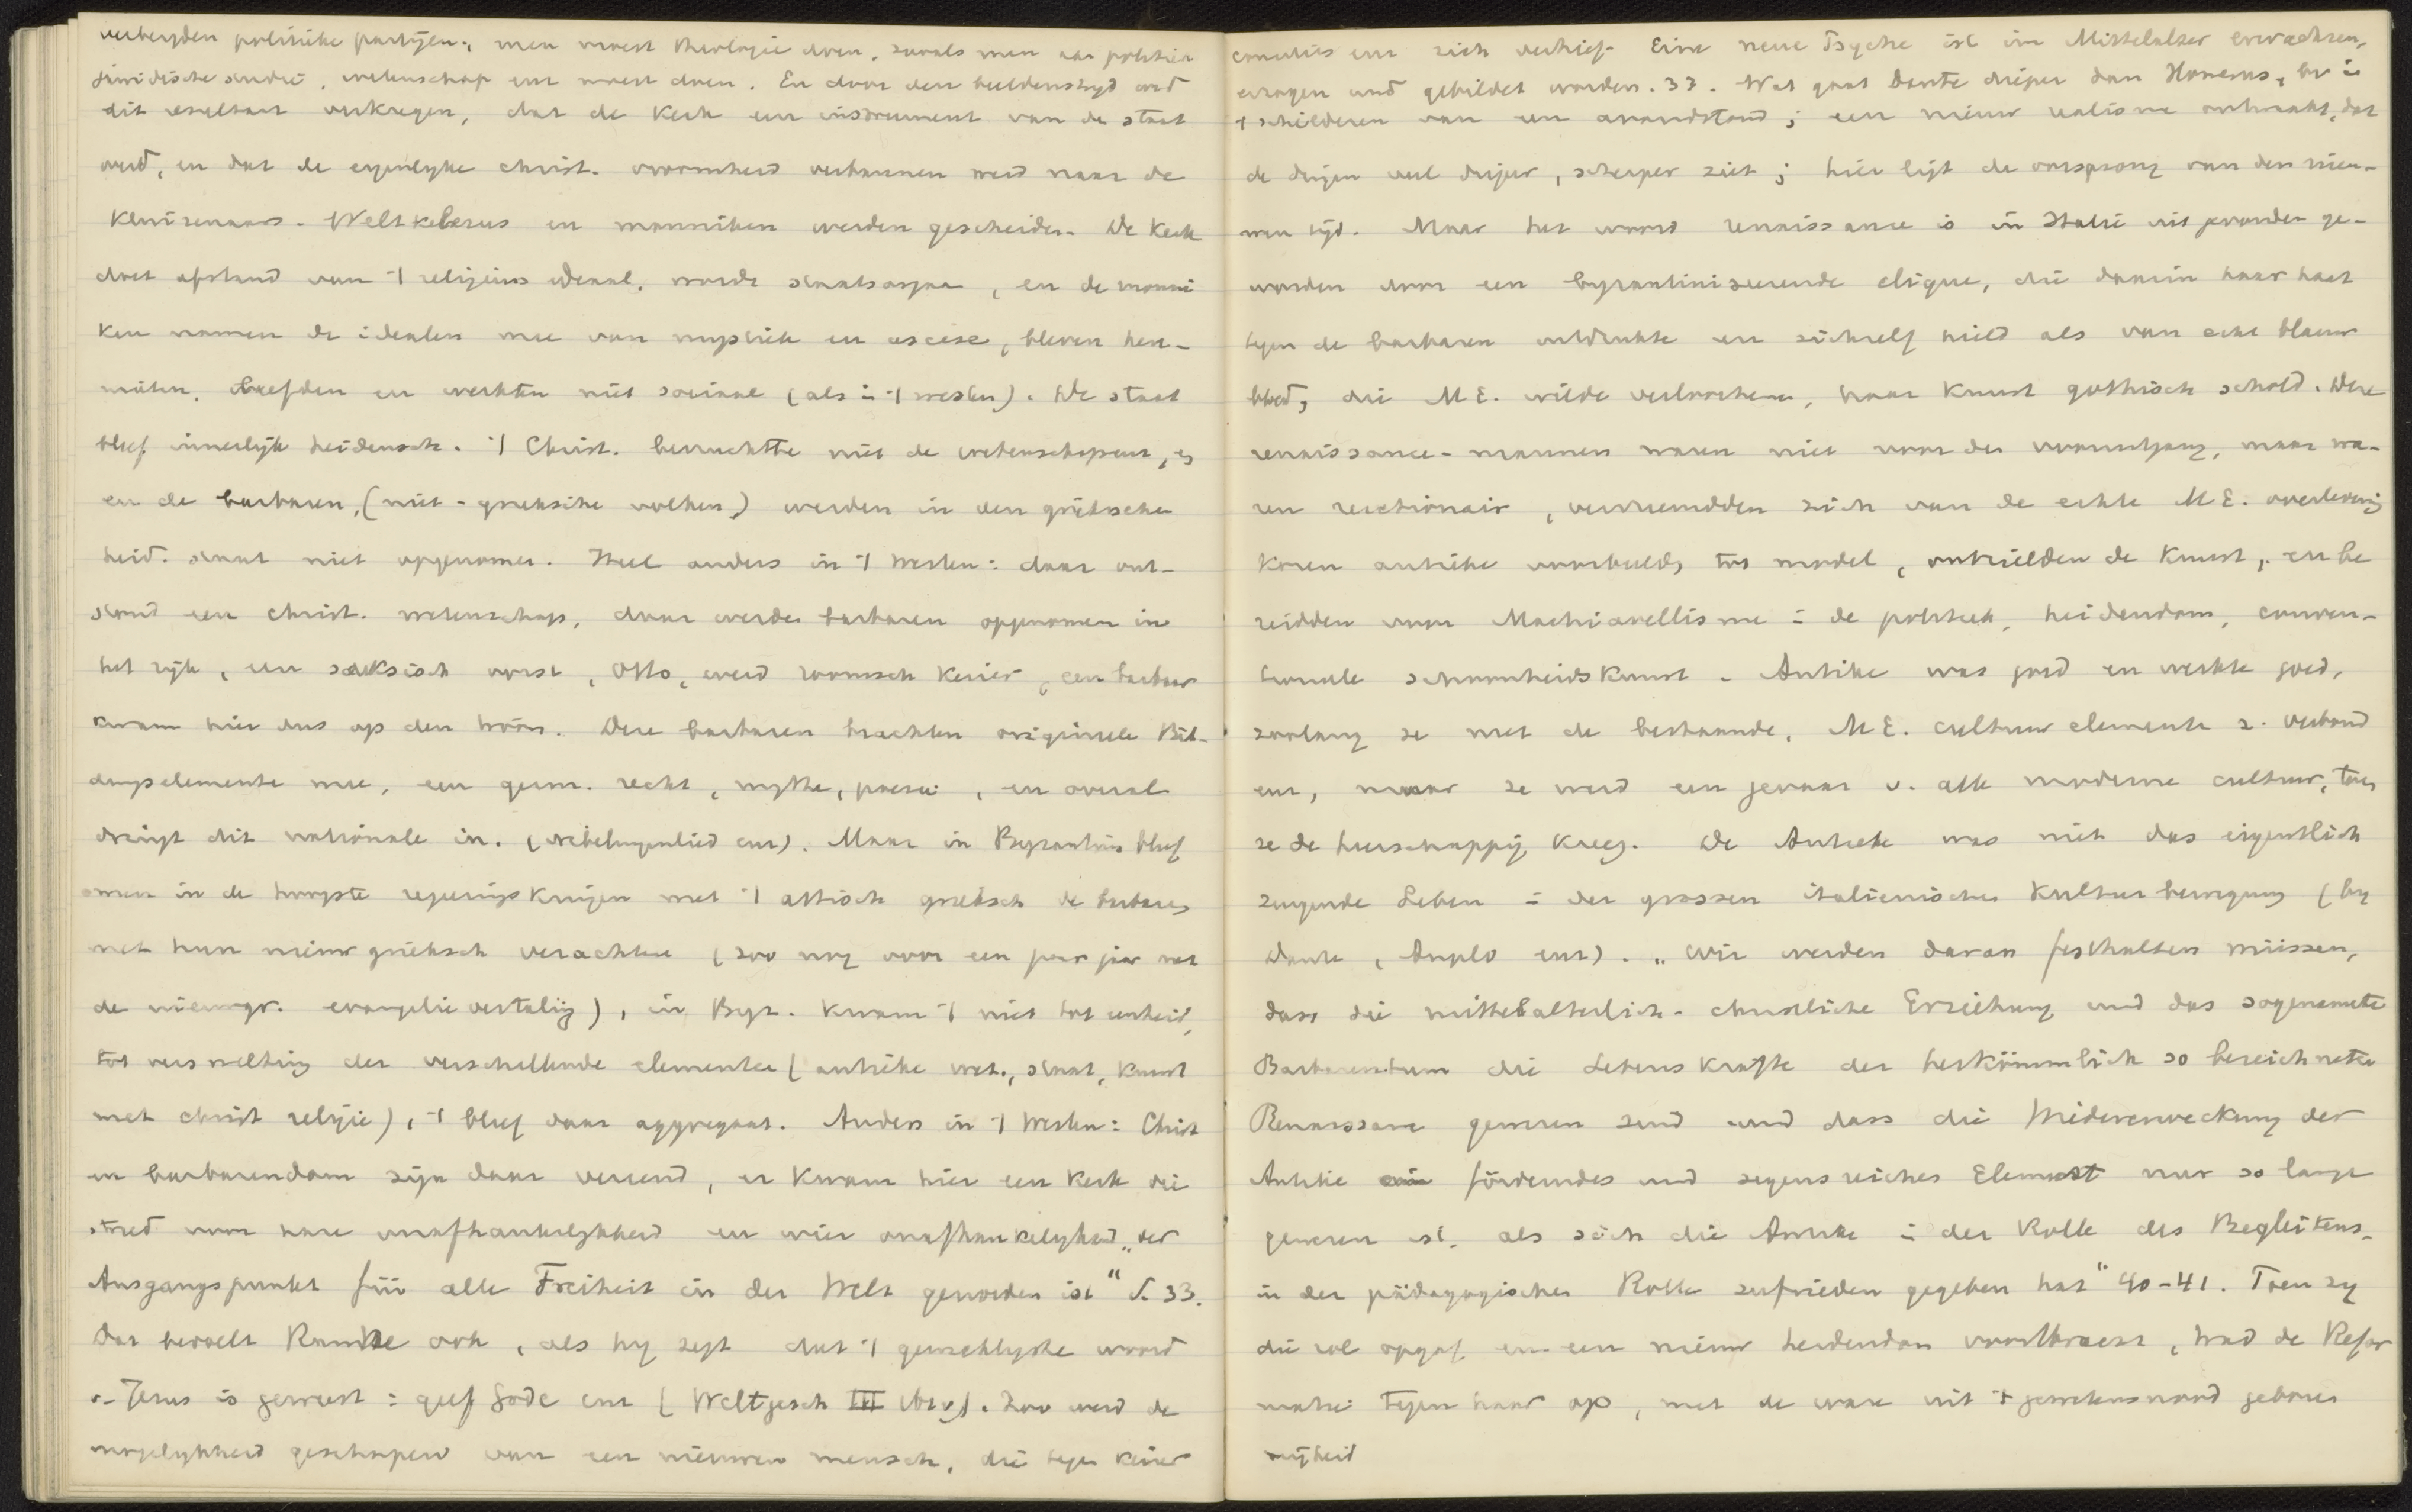 verbeyden politieke partijen, men moest theologie doen, zooals men aan politiek
juridische studie, wetenschap enz moest doen. En door den beeldenstryd werd
dit resultaat verkregen, dat de Kerk een instrument van de staat
werd, en dat de eigenlyke christ. vroomheid verbannen werd naar de
Kluizenaars. Weltkelerus en monniken werden gescheiden. De Kerk
doet afstand van 't religieus ideaal, wordt staatsorgaan, en de monni
ken namen de idealen mee van mystiek en ascese, bleven here-
mieten, leefden en werkten niet sociaal (als in 't westen). De staat
bleef innerlijk heidensch. 't Christ. bevruchtte niet de wetenschappen,
en de barbaren, (niet-grieksche volken) werden in den grieksche
heid. staat niet opgenomen. Heel anders in 't westen: daar ont-
stond een christ. wetenschap, daar werden barbaren opgenomen in
het ryk, een saksisch vorst, Otto, werd roomsch Keizer, een barbaar
kwam hier dus op den troon. Deze barbaren brachten origineele Bil-
dungselemente mee, een germ. recht, mythe, poezie, en overal
dringt dit nationale in. (Nibelungenlied enz). Maar in Byzantium bleef
men in de hoogste regeeringskringen met 't attisch grieksch de barbaren
met hun nieuw grieksch verachten (zoo nog voor een paar jaar met
de nieuwgr. evangelie vertaling), in Byz. kwam 't niet tot eenheid,
tot versmelting der verschillende elementen (antieke wet., staat, kunst
met christ religie), 't bleef daar aggregaat. Anders in 't Westen: Christ
en barbarendom zijn daar vereend, er kwam hier een Kerk die
streed voor hare onafhankelykheid en wier onafhankelykheid „der
Ausgangspunkt für alle Freiheit in der Welt geworden ist" S. 33.
Dat bevoelt Ranke ook, als hy zegt dat 't gewichtigste woord
v. Jezus is geweest: geef Gode enz (Weltgesch III 161 v). Zoo werd de
mogelykheid geschapen van een nieuwen mensch, die tegen Keizer
consulis enz zich verhief. Eine neue Psyche ist im Mittelalter erwachsen,
erzogen und gebildet worden. 33. Wat gaat Dante dieper dan Homerus, bv in
't schilderen van een avondstond; een nieuw realisme ontwaakt, dat
de dingen veel dieper, scherper ziet; hier ligt de oorsprong van den nieu-
wen tijd. Maar het woord renaissance is in Italie uitgevonden ge-
worden door een byzantiniseerende clique, die daarin haar haat
tegen de barbaren uitdrukte en zichzelf hield als van echt blauw
bloed, die M.E. wilde verloochenen, haar Kunst gothisch schold. Deze
renaissance-mannen waren niet voor den vooruitgang, maar wa-
ren reactionair, vervreemdden zich van de echte M.E. overlevering
Kozen antieke voorbeelden tot model, ontzielden de Kunst, en be
reidden voor Machiavellisme in de politiek, heidendom, conven-
tioneele schoonheidskunst. Antike was goed en werkte goed,
zoolang ze met de bestaande, M.E. cultuur elementen z. verbond
enz, maar ze werd een gevaar v. alle moderne cultuur, toen
ze de heerschappij Kreeg. De Antieke was niet das eigentlich
zeugende Leben in der grossen italienischen Kulturbewegung (by
Dante, Angelo enz). „Wir werden daran festhalten müssen,
dass die mittelalterlich-christliche Erziehung und das sogenannte
Barbarentum die Lebenskräfte der herkömmlich so bezeichneten
Renaissance gewesen sind und dass die Wiedererweckung der
Antike ein förderndes und segensreiches Element nur so lange
gewesen ist, als sich die Antike in der Rolle des Begleitens,
in der pädagogischen Rolle zufrieden gegeben hat" 40-41. Toen zy
die rol opgaf en een nieuw heidendom voortbracht, trad de Refor
matie tegen haar op, met de ware uit 't gewetensnood geboren
vrijheid